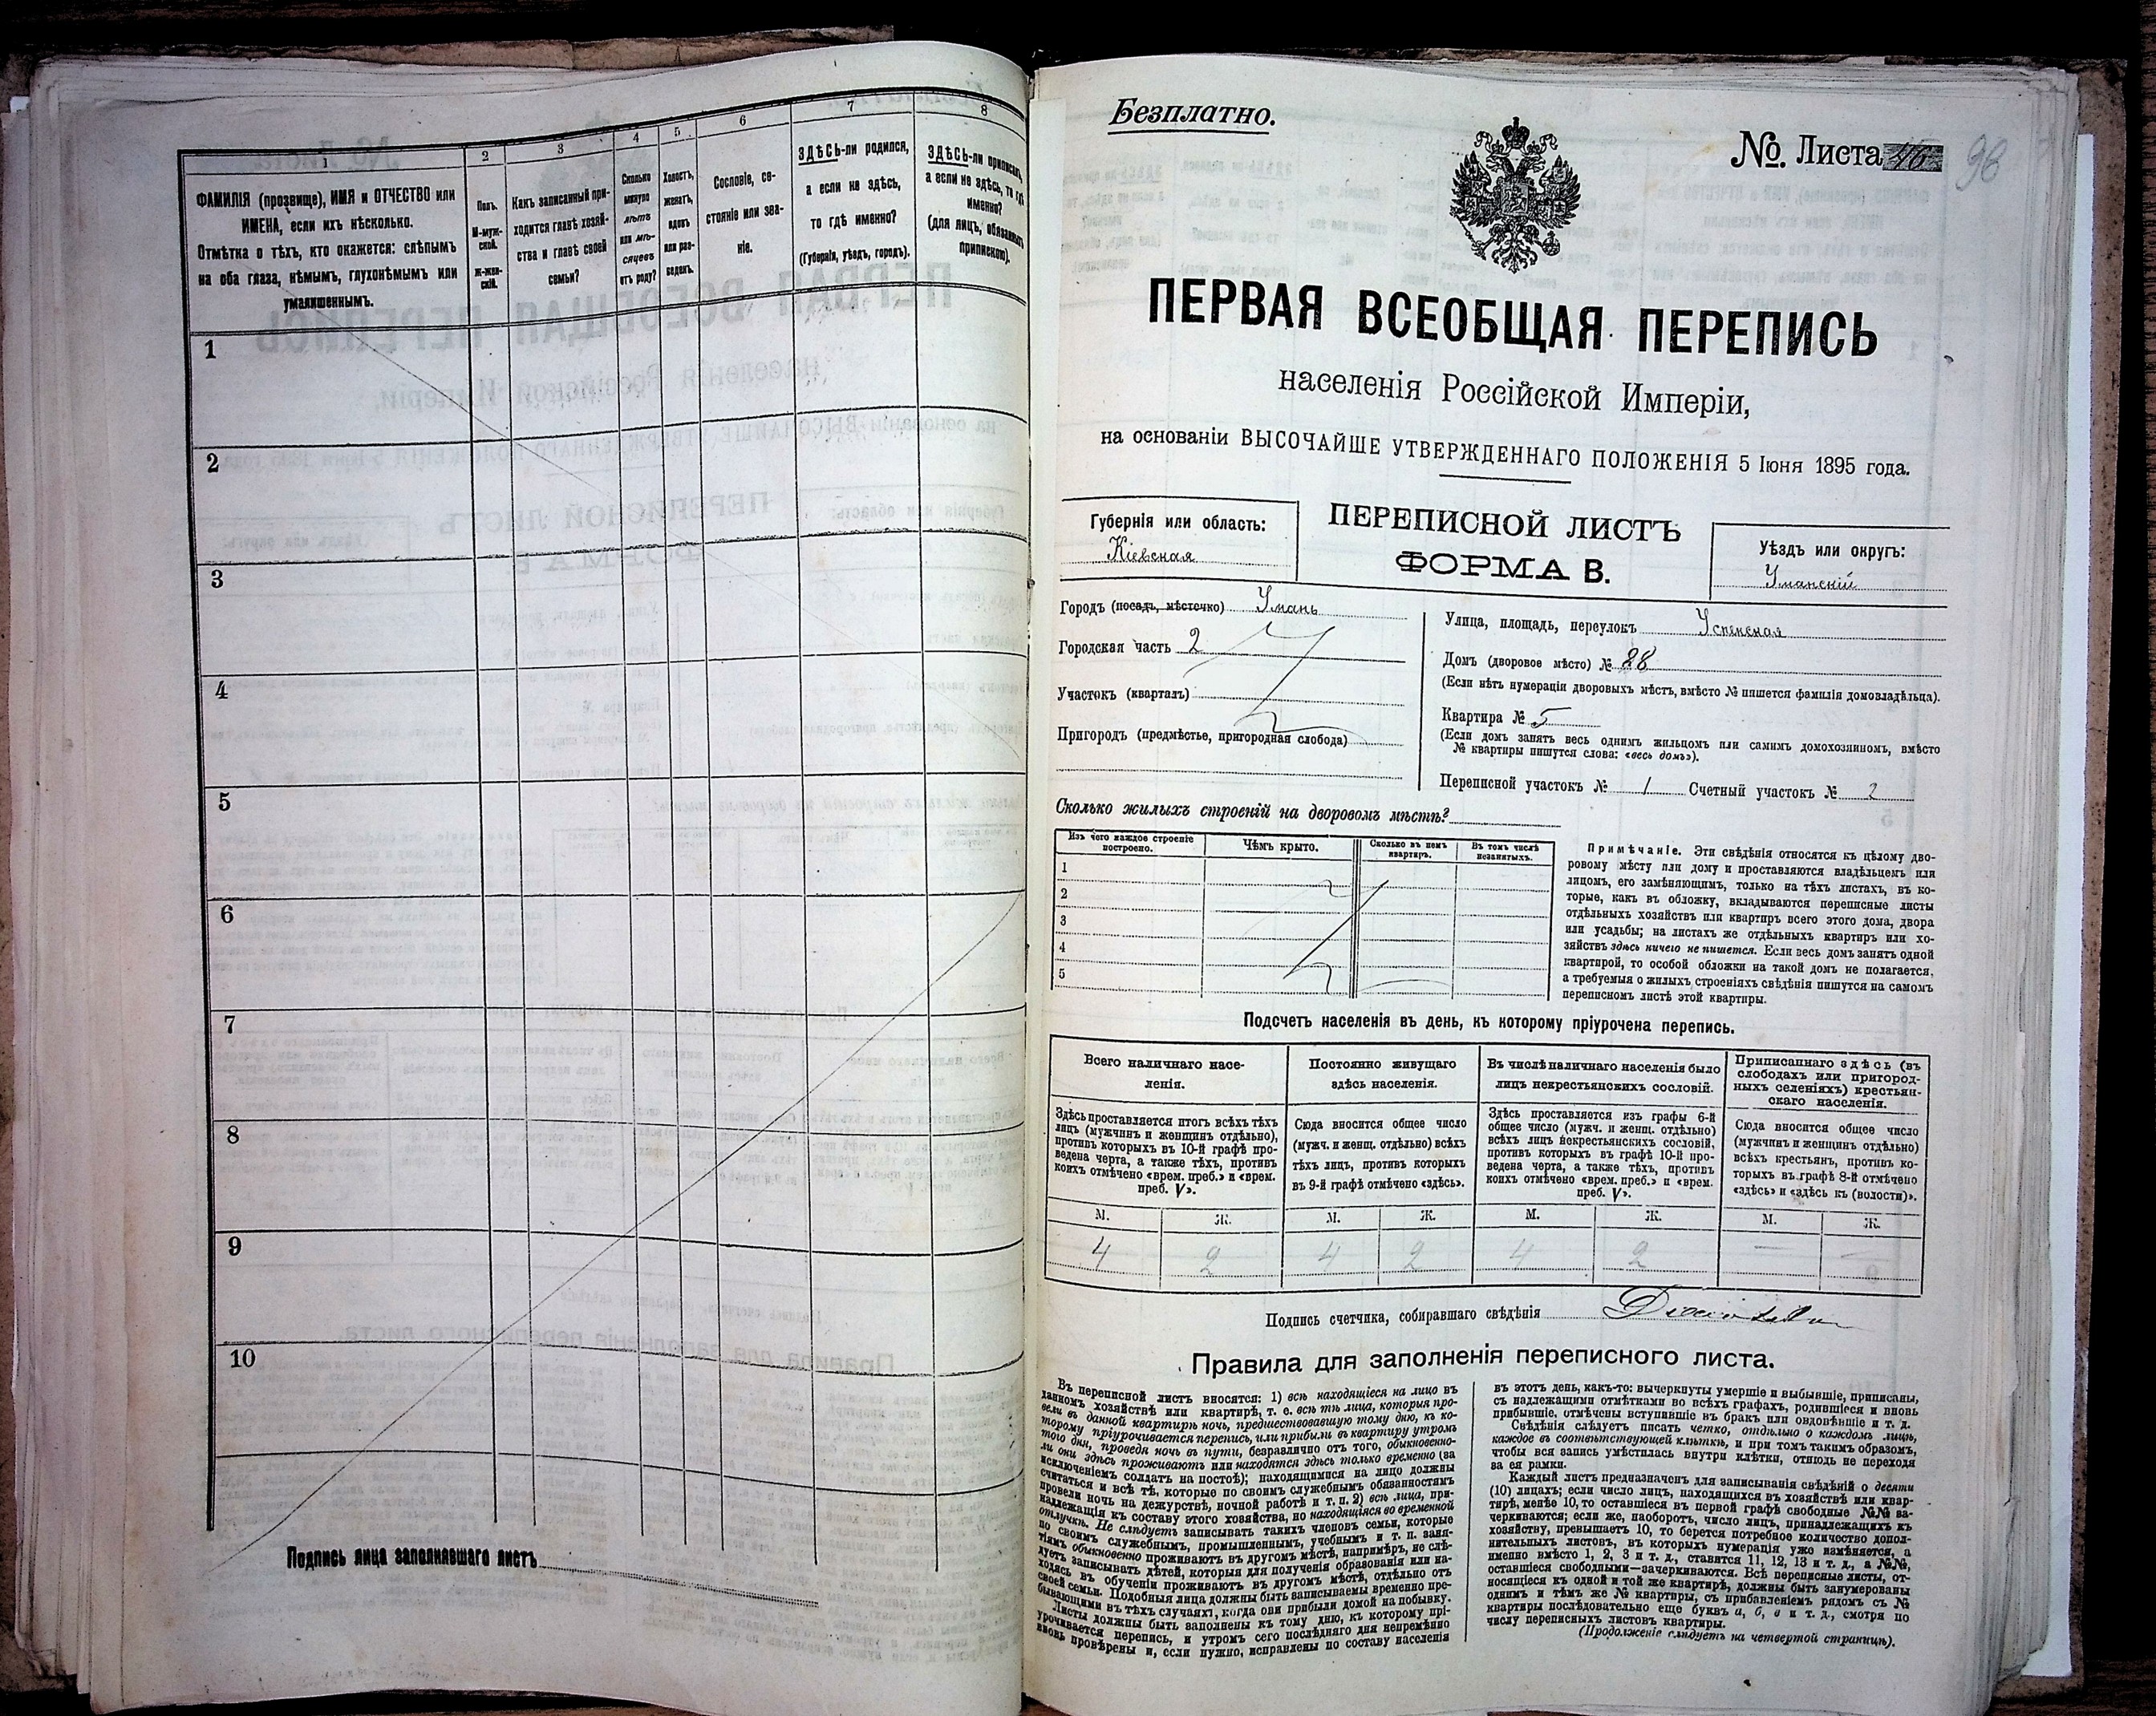 1
ФАМИЛІЯ (прозвище), ИМЯ и ОТЧЕСТВО или
ИМЕНА, если ихъ нѣсколько.
Отмѣтка о тѣхъ, кто окажется: слѣпымъ
на оба глаза, нѣмымъ, глухонѣмымъ или
умалишеннымъ.
2
Полъ.
М-муж-
ской.
Ж-жен-
скій.
3
Какъ записанный при-
ходится главѣ хозяй-
ства и главѣ своей
семьи?
4
Сколько
минуло
лѣтъ
или мѣ-
сяцевъ
отъ роду?
5
Холостъ,
женатъ,
вдовъ
или раз-
веденъ.
6
Сословіе, со-
стояніе или зва-
ніе.
7
ЗДѢСЬ-ли родился,
а если не здѣсь,
то гдѣ именно?
(Губернія, уѣздъ, городъ).
8
ЗДѢСЬ-ли приписанъ,
а если не здѣсь, то гдѣ
именно?
(для лицъ, обязанныхъ
припискою).
1
2
3
4
5
6
7
8
9
10
Подпись лица заполнявшаго листъ
Безплатно.
№ Листа 46 98
ПЕРВАЯ ВСЕОБЩАЯ ПЕРЕПИСЬ
населенія Россійской Имперіи,
на основаніи ВЫСОЧАЙШЕ УТВЕРЖДЕННАГО ПОЛОЖЕНІЯ 5 Іюня 1895 года.
Губернія или область:
Кіевская
ПЕРЕПИСНОЙ ЛИСТЪ
ФОРМА В.
Уѣздъ или округъ:
Уманскій
Городъ (посадъ, мѣстечко) Умань
Городская часть 2
Участокъ (кварталъ)
Пригородъ (предмѣстье, пригородная слобода)
Улица, площадь, переулокъ Успенская
Домъ (дворовое мѣсто) № 28
(Если нѣтъ нумераціи дворовыхъ мѣстъ, вмѣсто № пишется фамилія домовладѣльца).
Квартира № 5
(Если домъ занятъ весь однимъ жильцомъ или самимъ домохозяиномъ, вмѣсто
№ квартиры пишутся слова: «весь домъ»).
Переписной участокъ № 1 Счетный участокъ № 2
Сколько жилыхъ строеній на дворовомъ мѣстѣ?
Изъ чего каждое строеніе
построено.
Чѣмъ крыто.
Сколько въ немъ
квартиръ.
Въ томъ числѣ
незанятыхъ.
1
2
3
4
5
Примѣчаніе. Эти свѣдѣнія относятся къ цѣлому дво-
ровому мѣсту или дому и проставляются владѣльцемъ или
лицомъ, его замѣняющимъ, только на тѣхъ листахъ, въ ко-
торые, какъ въ обложку, вкладываются переписные листы
отдѣльныхъ хозяйствъ или квартиръ всего этого дома, двора
или усадьбы; на листахъ же отдѣльныхъ квартиръ или хо-
зяйствъ здѣсь ничего не пишется. Если весь домъ занятъ одной
квартирой, то особой обложки на такой домъ не полагается,
а требуемыя о жилыхъ строеніяхъ свѣдѣнія пишутся на самомъ
переписномъ листѣ этой квартиры.
Подсчетъ населенія въ день, къ которому пріурочена перепись.
Всего наличнаго насе-
ленія.
Здѣсь проставляется итогъ всѣхъ тѣхъ
лицъ (мужчинъ и женщинъ отдѣльно),
противъ которыхъ въ 10-й графѣ про-
ведена черта, а также тѣхъ, противъ
коихъ отмѣчено «врем. преб.» и «врем.
преб. V».
Постоянно живущаго
здѣсь населенія.
Сюда вносится общее число
(мужч. и женщ. отдѣльно) всѣхъ
тѣхъ лицъ, противъ которыхъ
въ 9-й графѣ отмѣчено «здѣсь».
Въ числѣ наличнаго населенія было
лицъ некрестьянскихъ сословій.
Здѣсь проставляется изъ графы 6-й
общее число (мужч. и женщ. отдѣльно)
всѣхъ лицъ некрестьянскихъ сословій,
противъ которыхъ въ графѣ 10-й про-
ведена черта, а также тѣхъ, противъ
коихъ отмѣчено «врем. преб.» и «врем.
преб. V».
Приписаннаго здѣсь (въ
слободахъ или пригород-
ныхъ селеніяхъ) крестьян-
скаго населенія.
Сюда вносится общее число
(мужчинъ и женщинъ отдѣльно)
всѣхъ крестьянъ, противъ ко-
торыхъ въ графѣ 8-й отмѣчено
«здѣсь» и «здѣсь къ (волости)».
М. Ж. М. Ж. М. Ж. М. Ж.
4 2 4 2 4 2 — —
Подпись счетчика, собиравшаго свѣдѣнія
Правила для заполненія переписного листа.
Въ переписной листъ вносятся: 1) всѣ находящіеся на лицо въ
данномъ хозяйствѣ или квартирѣ, т. е. всѣ тѣ лица, которыя про-
вели въ данной квартирѣ ночь, предшествовавшую тому дню, къ ко-
торому пріурочивается перепись, или прибыли въ квартиру утромъ
того дня, проведя ночь въ пути, безразлично отъ того, обыкновенно-
ли они здѣсь проживаютъ или находятся здѣсь только временно (за
исключеніемъ солдатъ на постоѣ); находящимися на лицо должны
считаться и всѣ тѣ, которые по своимъ служебнымъ обязанностямъ
провели ночь на дежурствѣ, ночной работѣ и т. п. 2) всѣ лица, при-
надлежащія къ составу этого хозяйства, но находящіяся во временной
отлучкѣ. Не слѣдуетъ записывать такихъ членовъ семьи, которые
по своимъ служебнымъ, промышленнымъ, учебнымъ и т. п. заня-
тіямъ обыкновенно проживаютъ въ другомъ мѣстѣ, напримѣръ, не слѣ-
дуетъ записывать дѣтей, которыя для полученія образованія или на-
ходясь въ обученіи проживаютъ въ другомъ мѣстѣ, отдѣльно отъ
своей семьи. Подобныя лица должны быть записываемы временно пре-
бывающими въ тѣхъ случаяхъ, когда они прибыли домой на побывку.
Листы должны быть заполнены къ тому дню, къ которому прі-
урочивается перепись, и утромъ сего послѣдняго дня непремѣнно
вновь провѣрены и, если нужно, исправлены по составу населенія
въ этотъ день, какъ-то: вычеркнуты умершіе и выбывшіе, приписаны,
съ надлежащими отмѣтками во всѣхъ графахъ, родившіеся и вновь
прибывшіе, отмѣчены вступившіе въ бракъ или овдовѣвшіе и т. д.
Свѣдѣнія слѣдуетъ писать четко, отдѣльно о каждомъ лицѣ,
каждое въ соотвѣтствующей клѣткѣ, и при томъ такимъ образомъ,
чтобы вся запись умѣстилась внутри клѣтки, отнюдь не переходя
за ея рамки.
Каждый листъ предназначенъ для записыванія свѣдѣній о десяти
(10) лицахъ; если число лицъ, находящихся въ хозяйствѣ или квар-
тирѣ, менѣе 10, то оставшіеся въ первой графѣ свободные №№ за-
черкиваются; если же, наоборотъ, число лицъ, принадлежащихъ къ
хозяйству, превышаетъ 10, то берется потребное количество допол-
нительныхъ листовъ, въ которыхъ нумерація уже измѣняется, а
именно вмѣсто 1, 2, 3 и т. д., ставятся 11, 12, 13 и т. д., а №№,
оставшіеся свободными—зачеркиваются. Всѣ переписные листы, от-
носящіеся къ одной и той же квартирѣ, должны быть занумерованы
однимъ и тѣмъ же № квартиры, съ прибавленіемъ рядомъ съ №
квартиры послѣдовательно еще буквъ а, б, в и т. д., смотря по
числу переписныхъ листовъ квартиры.
(Продолженіе слѣдуетъ на четвертой страницѣ).